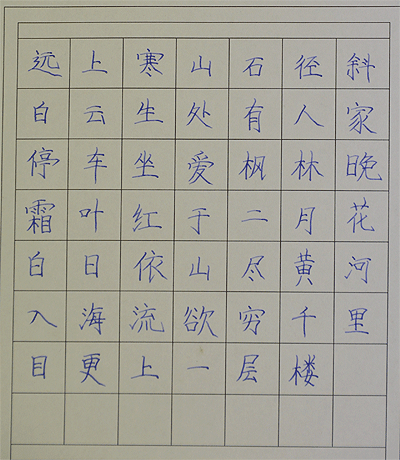 远上寒山石径斜
白云生处有人家
停车坐爱枫林晚
霜叶红于二月花
白日依山尽黄河
入海流欲穷千里
目更上一层楼